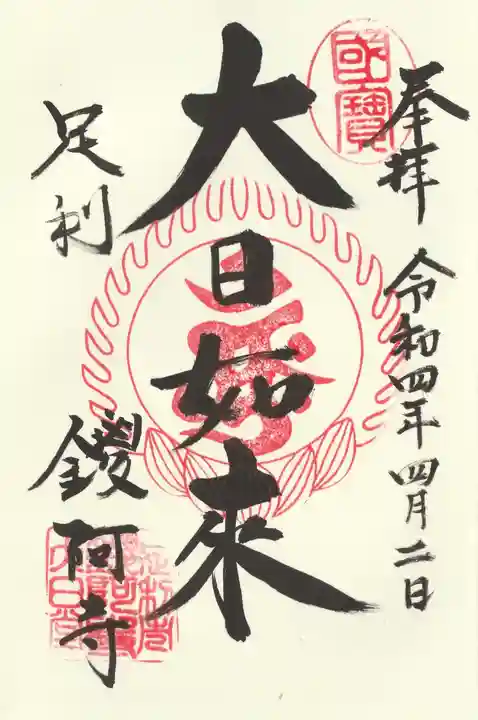 國寶
奉拝 令和四年四月二日
大日如来
足利 鑁阿寺